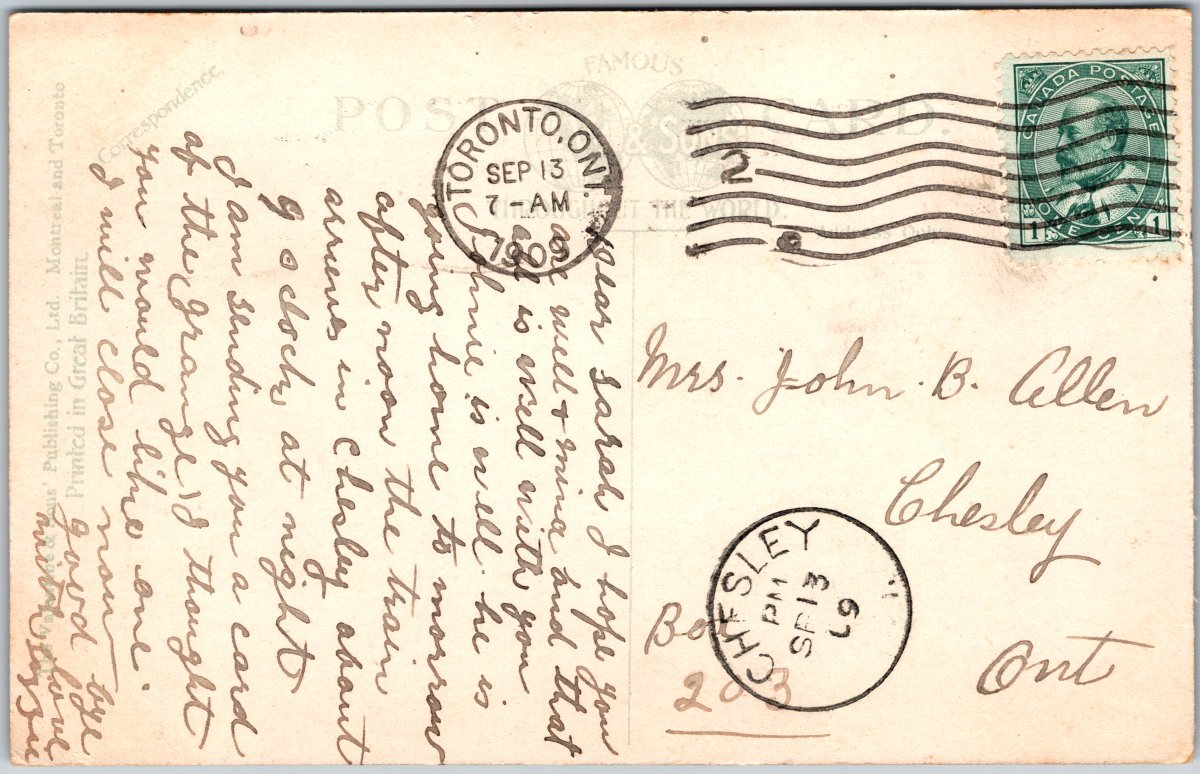 FAMOUS
POST CARD.
& Sons
THROUGHOUT THE WORLD.
Address Only
Correspondence.
TORONTO, ONT.
SEP 13
7-AM
1909
2
CANADA POSTAGE
1 ONE CENT 1
Dear Sarah I hope you
are well & mine and that
all is well with you
Johnie is well he is
going home to morrow
after noon the train
arrives in Chesley about
9 o clock at night
I am sending you a card
of the grange I thought
you would like one.
I will close now
good bye
with love
Mrs. John B. Allen
Chesley
Ont
Box
203
CHESLEY
PM
SP 13
09
& Sons' Publishing Co., Ltd. Montreal and Toronto
Printed in Great Britain.